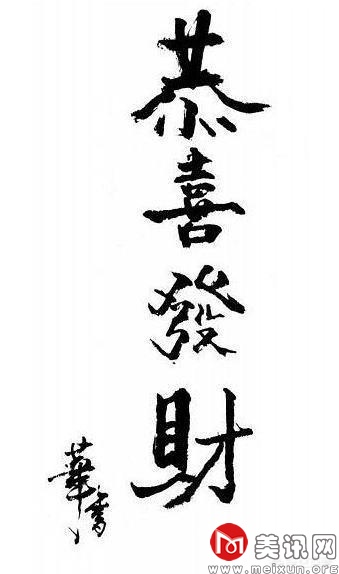 恭喜發財
華書
美讯网
www.meixun.org